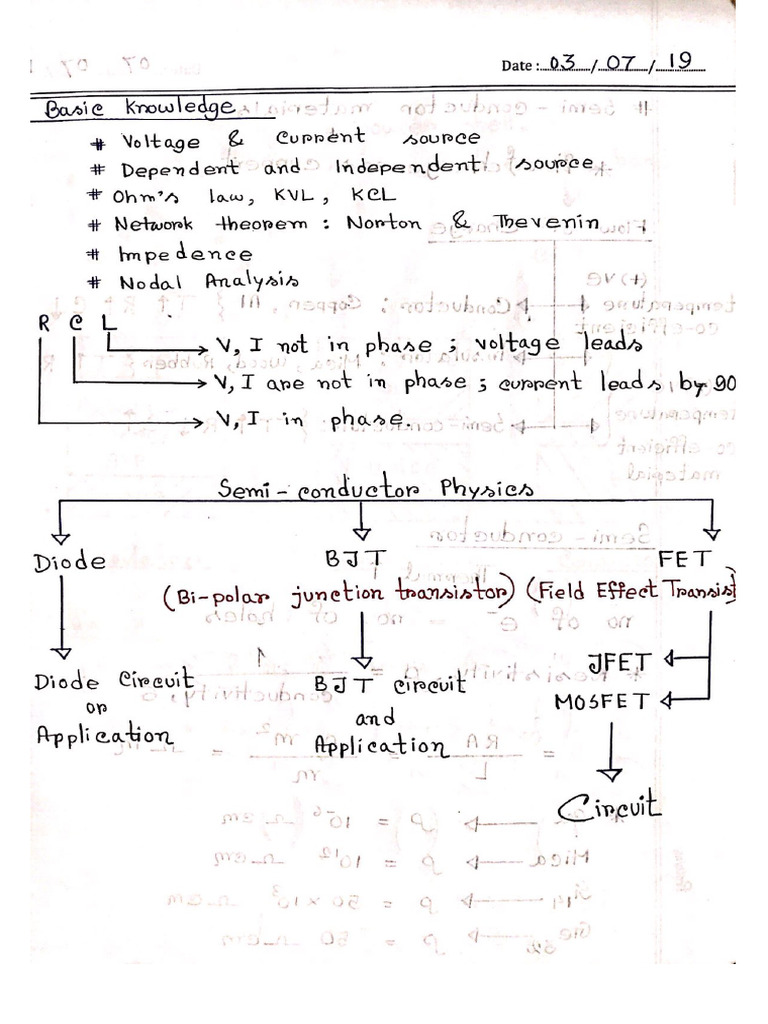 Date : 03 / 07 / 19
Basic Knowledge
# Voltage & Current source
# Dependent and Independent source
# Ohm's law, KVL, KCL
# Network theorem : Norton & Thevenin
# Impedence
# Nodal Analysis
R C L
V, I not in phase ; voltage leads
V, I are not in phase ; current leads by 90
V, I in phase.
Semi-conductor Physics
Diode BJT FET
(Bi-polar junction transistor) (Field Effect Transist
JFET
Diode Circuit BJT circuit MOSFET
or and
Application Application
Circuit